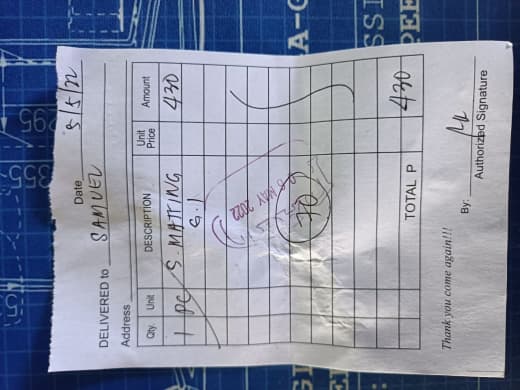 Date 5/5/22
DELIVERED to SAMUEL
Address
Qty. Unit DESCRIPTION Unit Price Amount
1 PC S. MATTING 430
G.I
05 MAY 2022
70
TOTAL P 430
Thank you come again!!!
By:
Authorized Signature